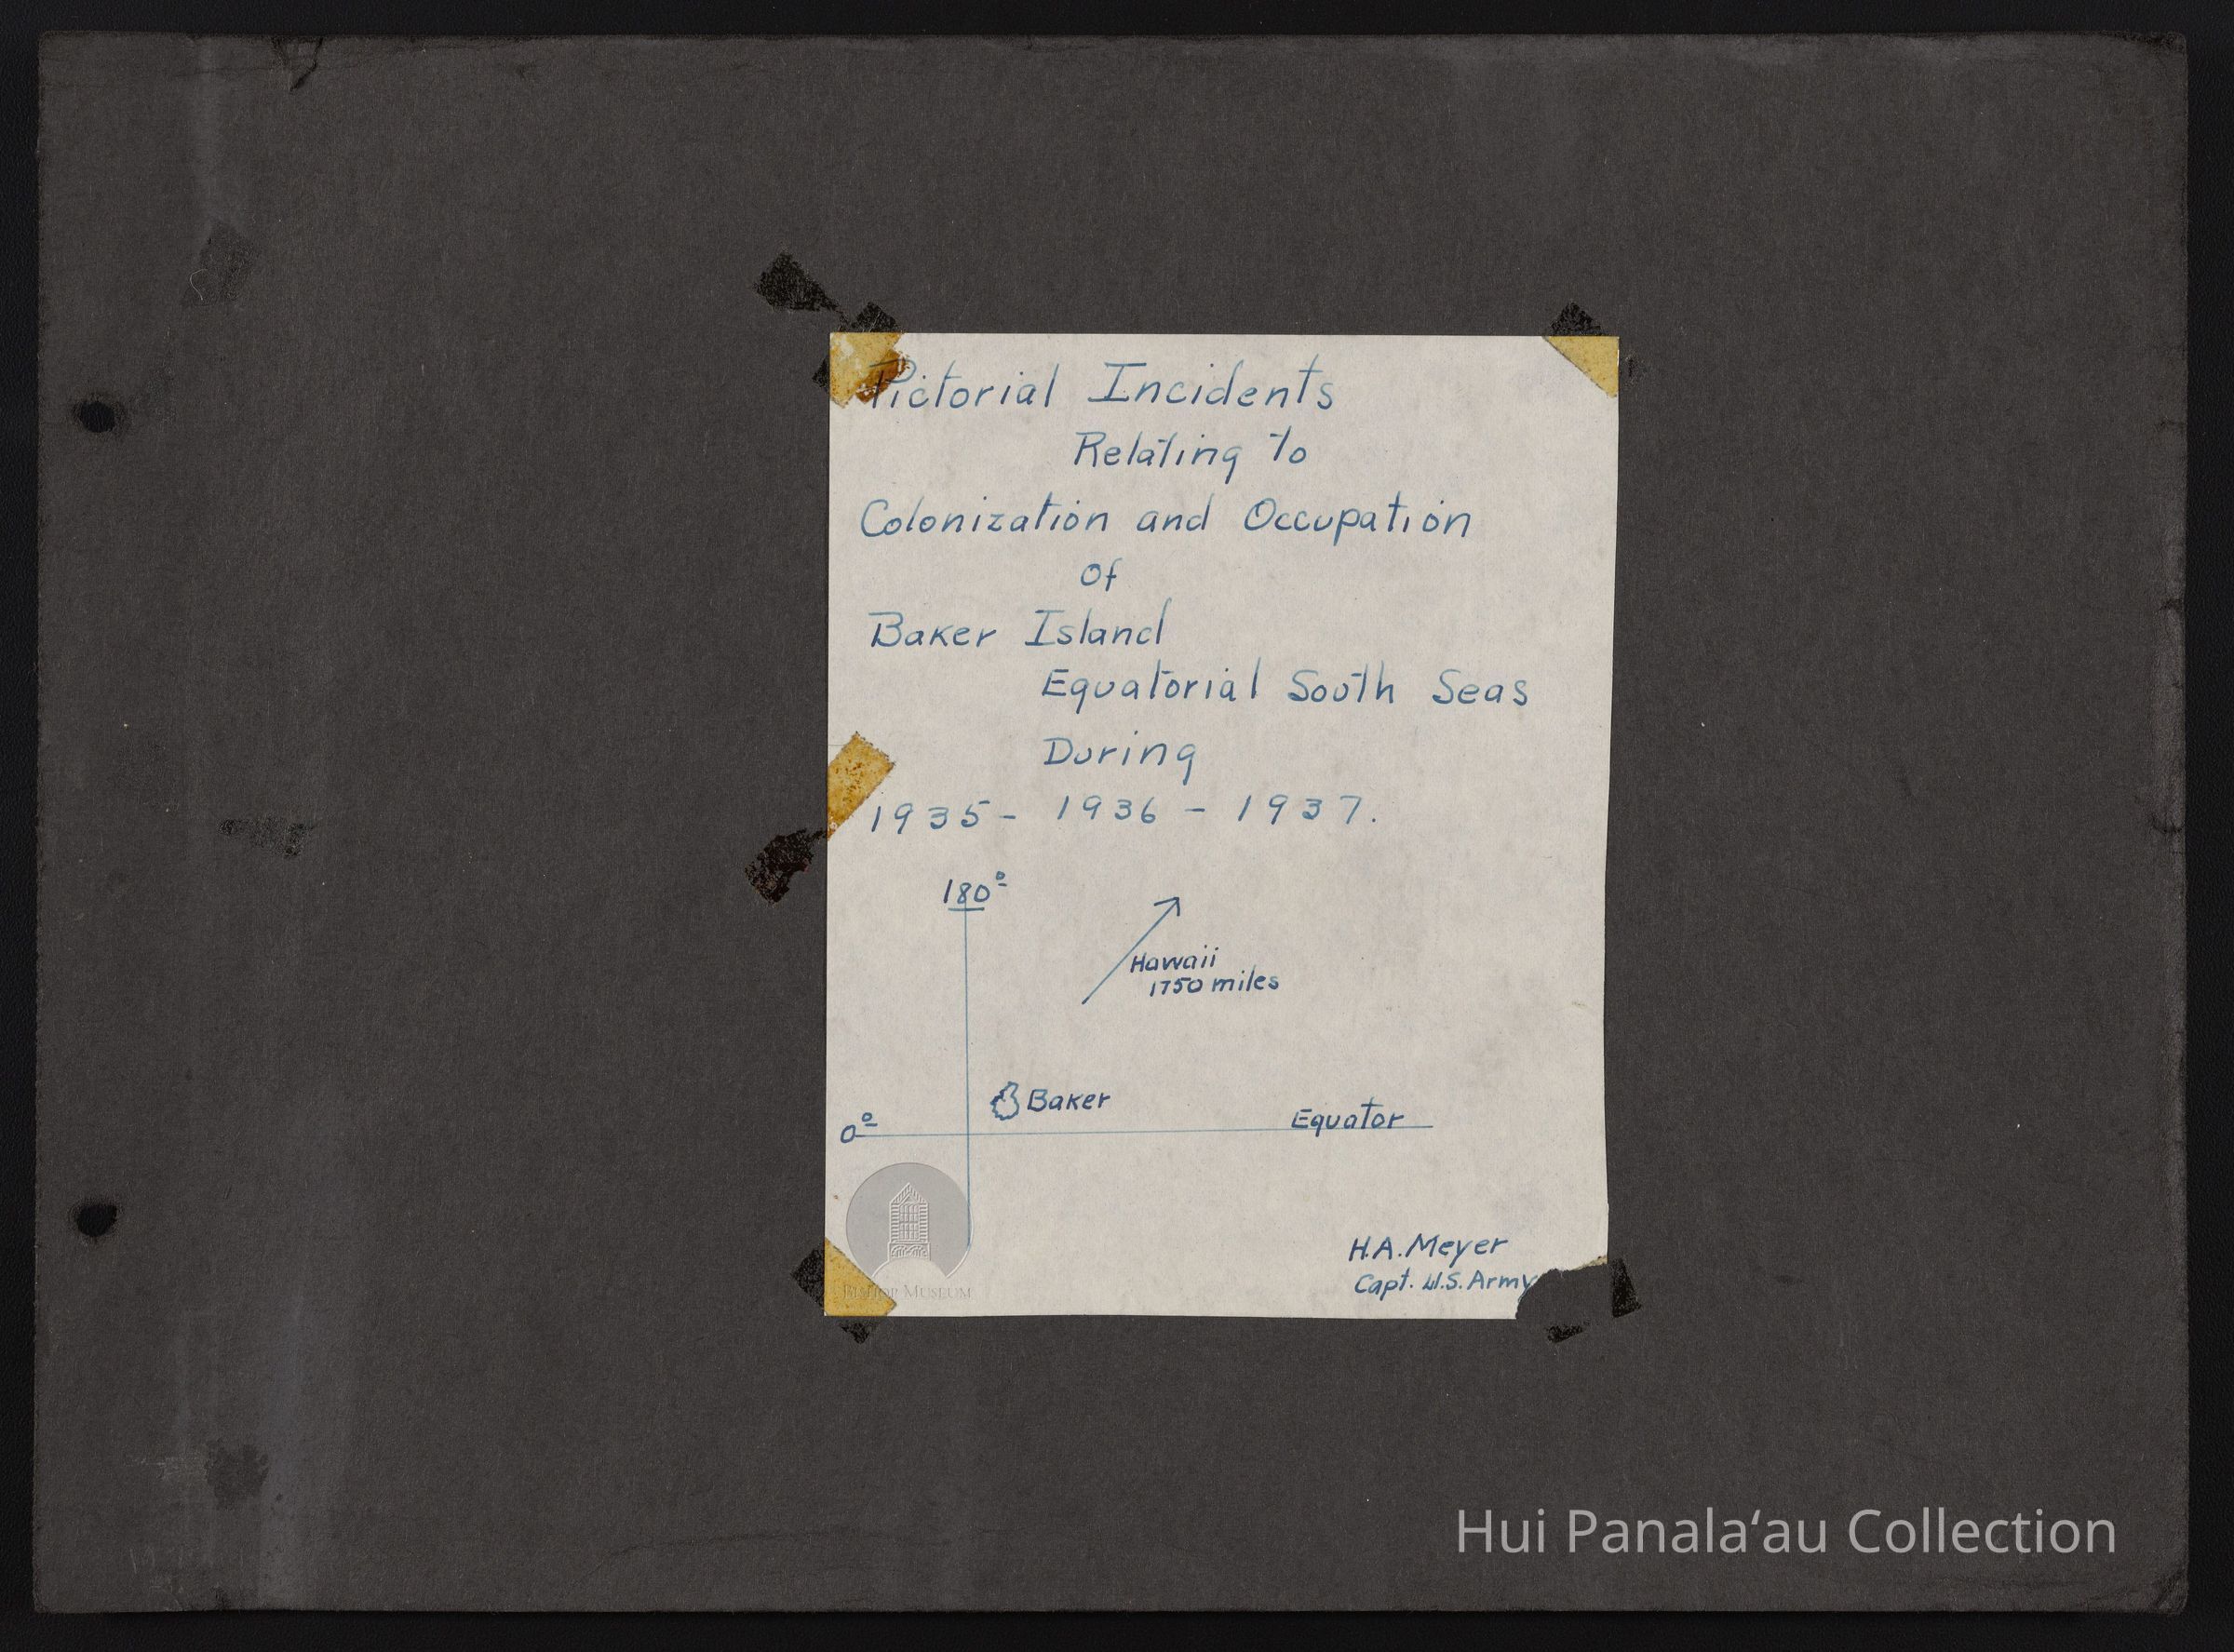 Pictorial Incidents
Relating to
Colonization and Occupation
Of
Baker Island
Equatorial South Seas
During
1935 - 1936 - 1937.
180°
Hawaii
1750 miles
Baker
0°
Equator
H.A. Meyer
Capt. U.S. Army
BISHOP MUSEUM
Hui Panalaʻau Collection